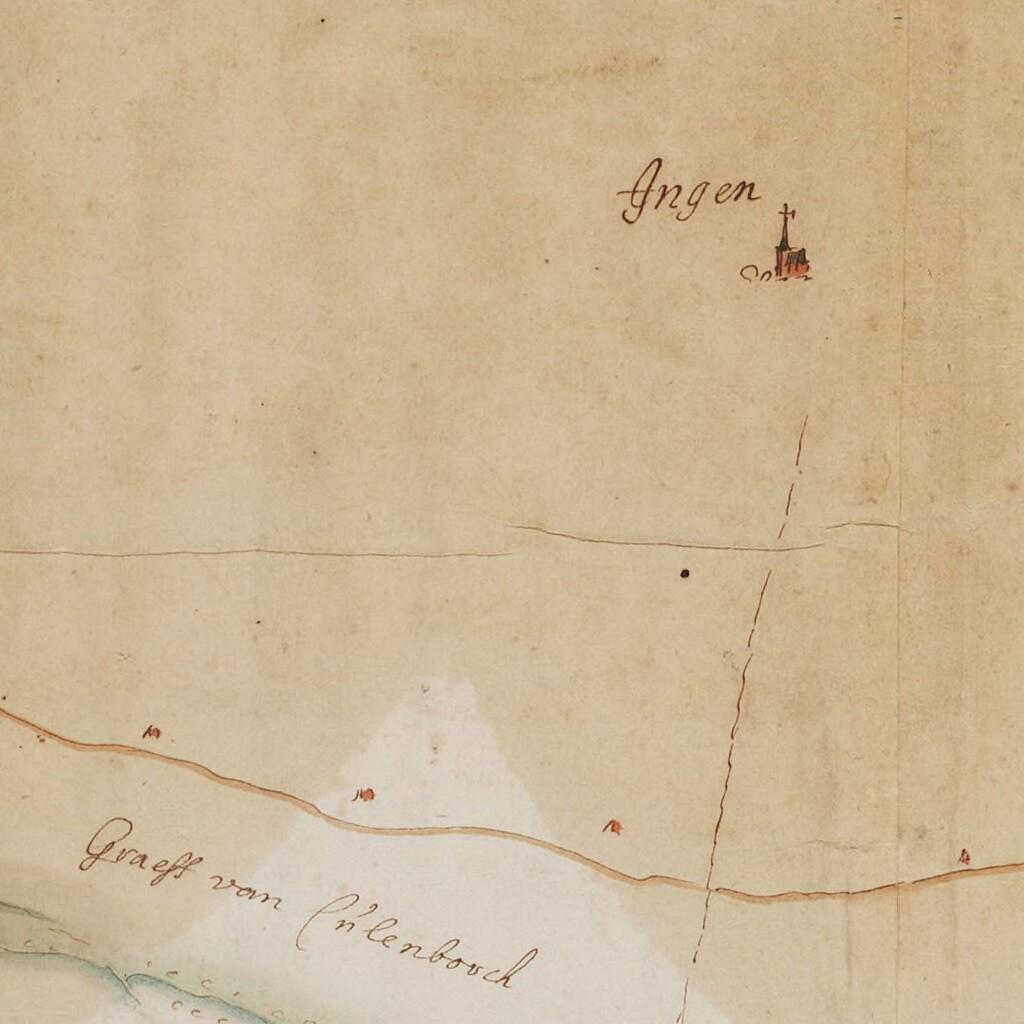 Ingen
Graeff van Cúlenborch